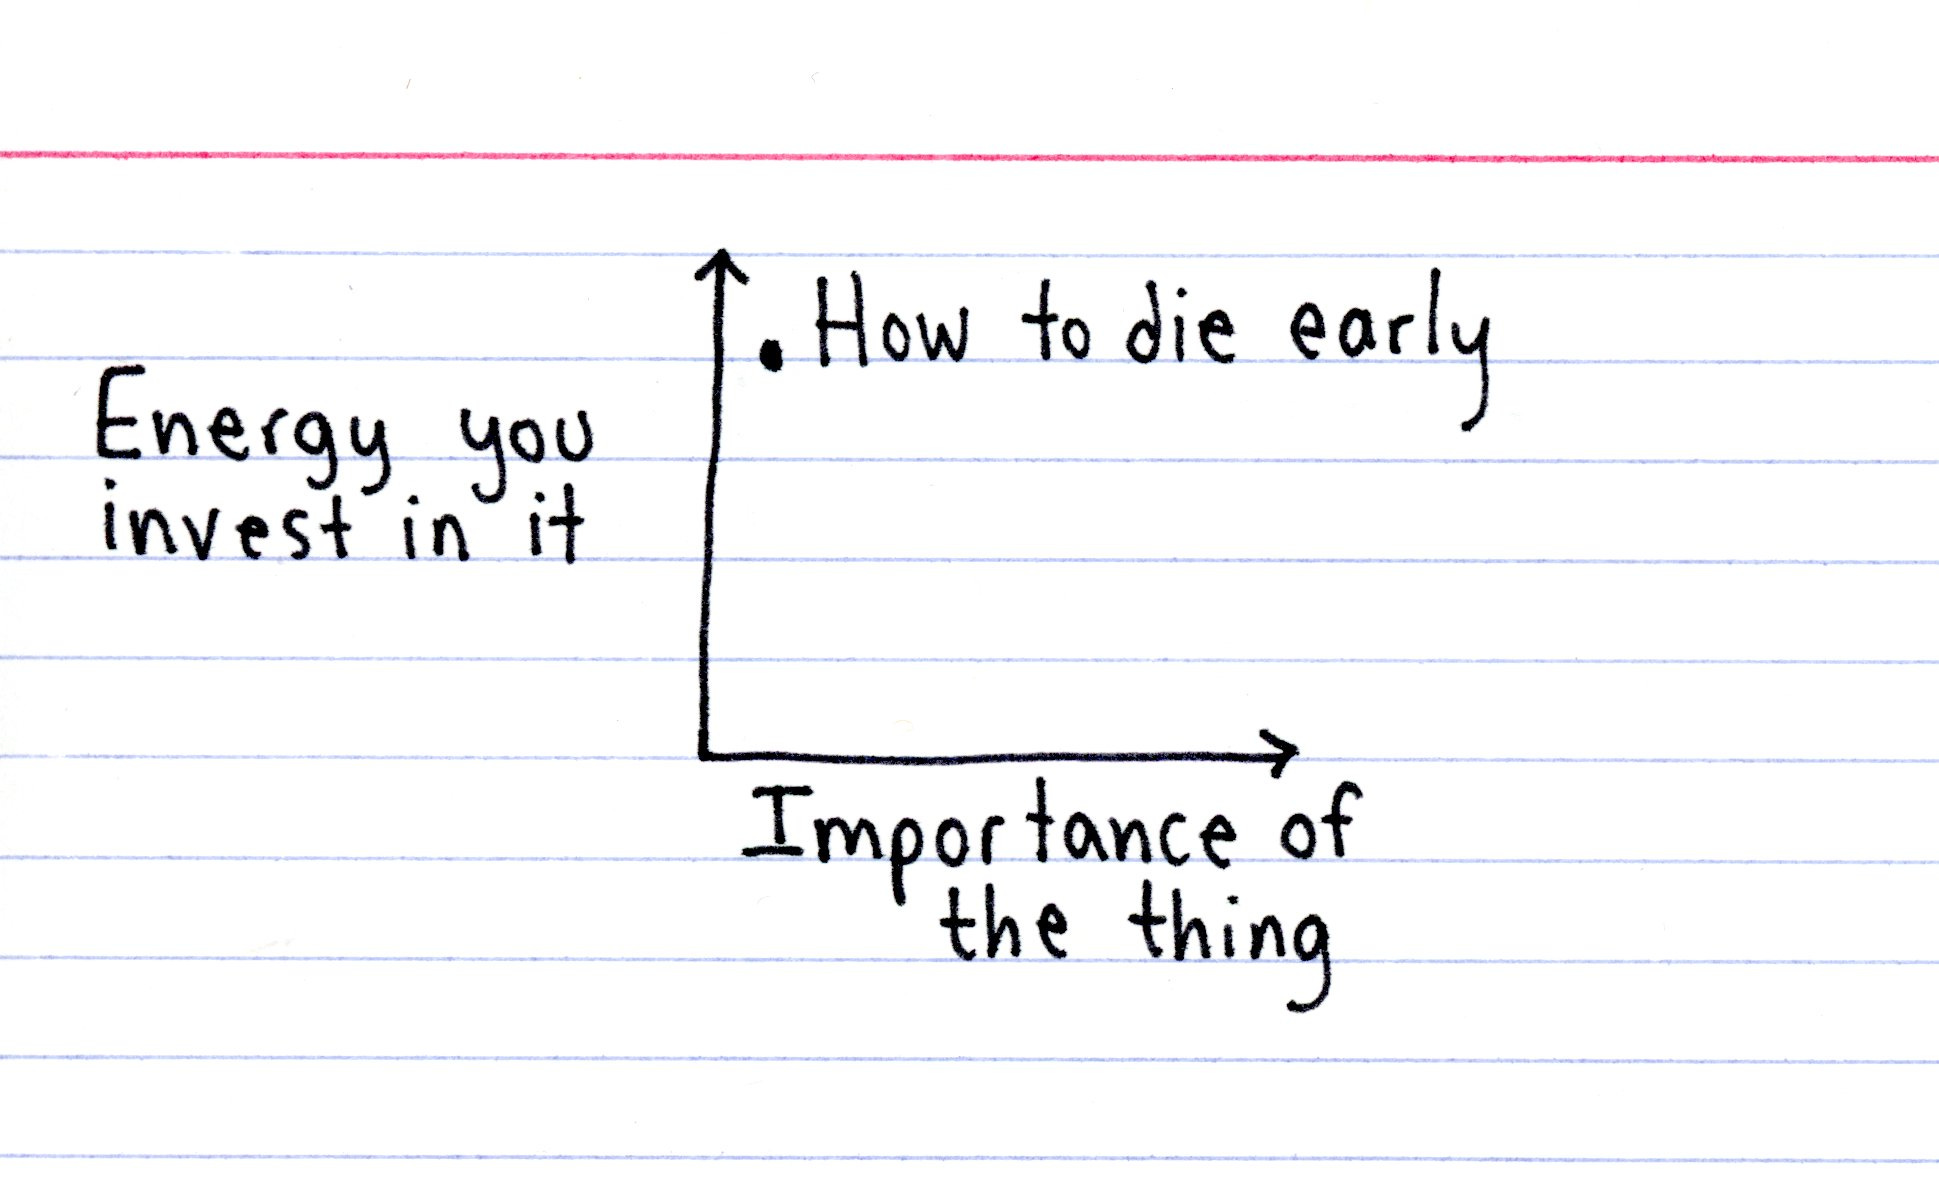 How to die early
Energy you
invest in it
Importance of
the thing